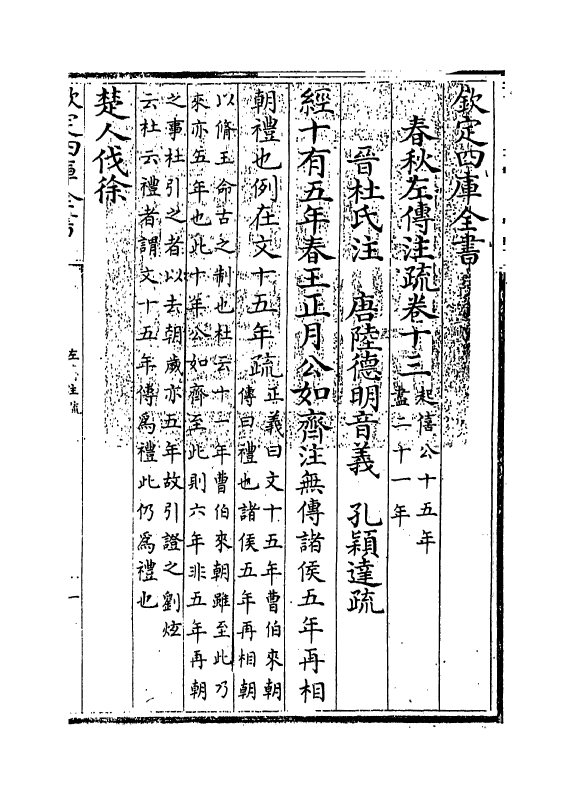 欽定四庫全書
春秋左傳注疏卷十三
起僖公十五年
盡二十一年
晉杜氏注 唐陸德明音義 孔穎達疏
經十有五年春王正月公如齊注無傳諸侯五年再相
朝禮也例在文十五年疏
正義曰文十五年曹伯來朝
傳曰禮也諸侯五年再相朝
以脩王命古之制也杜云十一年曹伯來朝雖至此乃
來亦五年也此十年公如齊至此則六年非五年再朝
之事杜引之者以去朝歲亦五年故引證之劉炫
云杜云禮者謂文十五年傳爲禮此仍爲禮也
楚人伐徐